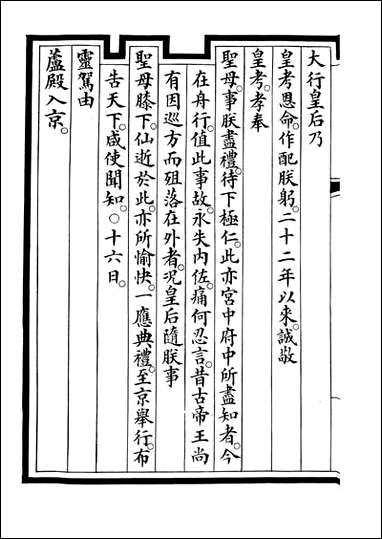 大行皇后乃
皇考恩命。作配朕躬。二十二年以來。誠敬
皇考。孝奉
聖母。事朕盡禮。待下極仁。此亦宮中府中所盡知者。今
在舟行。值此事故。永失內佐。痛何忍言。昔古帝王尚
有因巡方而殂落在外者。況皇后隨朕事
聖母膝下。仙逝於此。亦所愉快。一應典禮。至京舉行。布
告天下。咸使聞知。○十六日。
靈駕由
蘆殿入京。